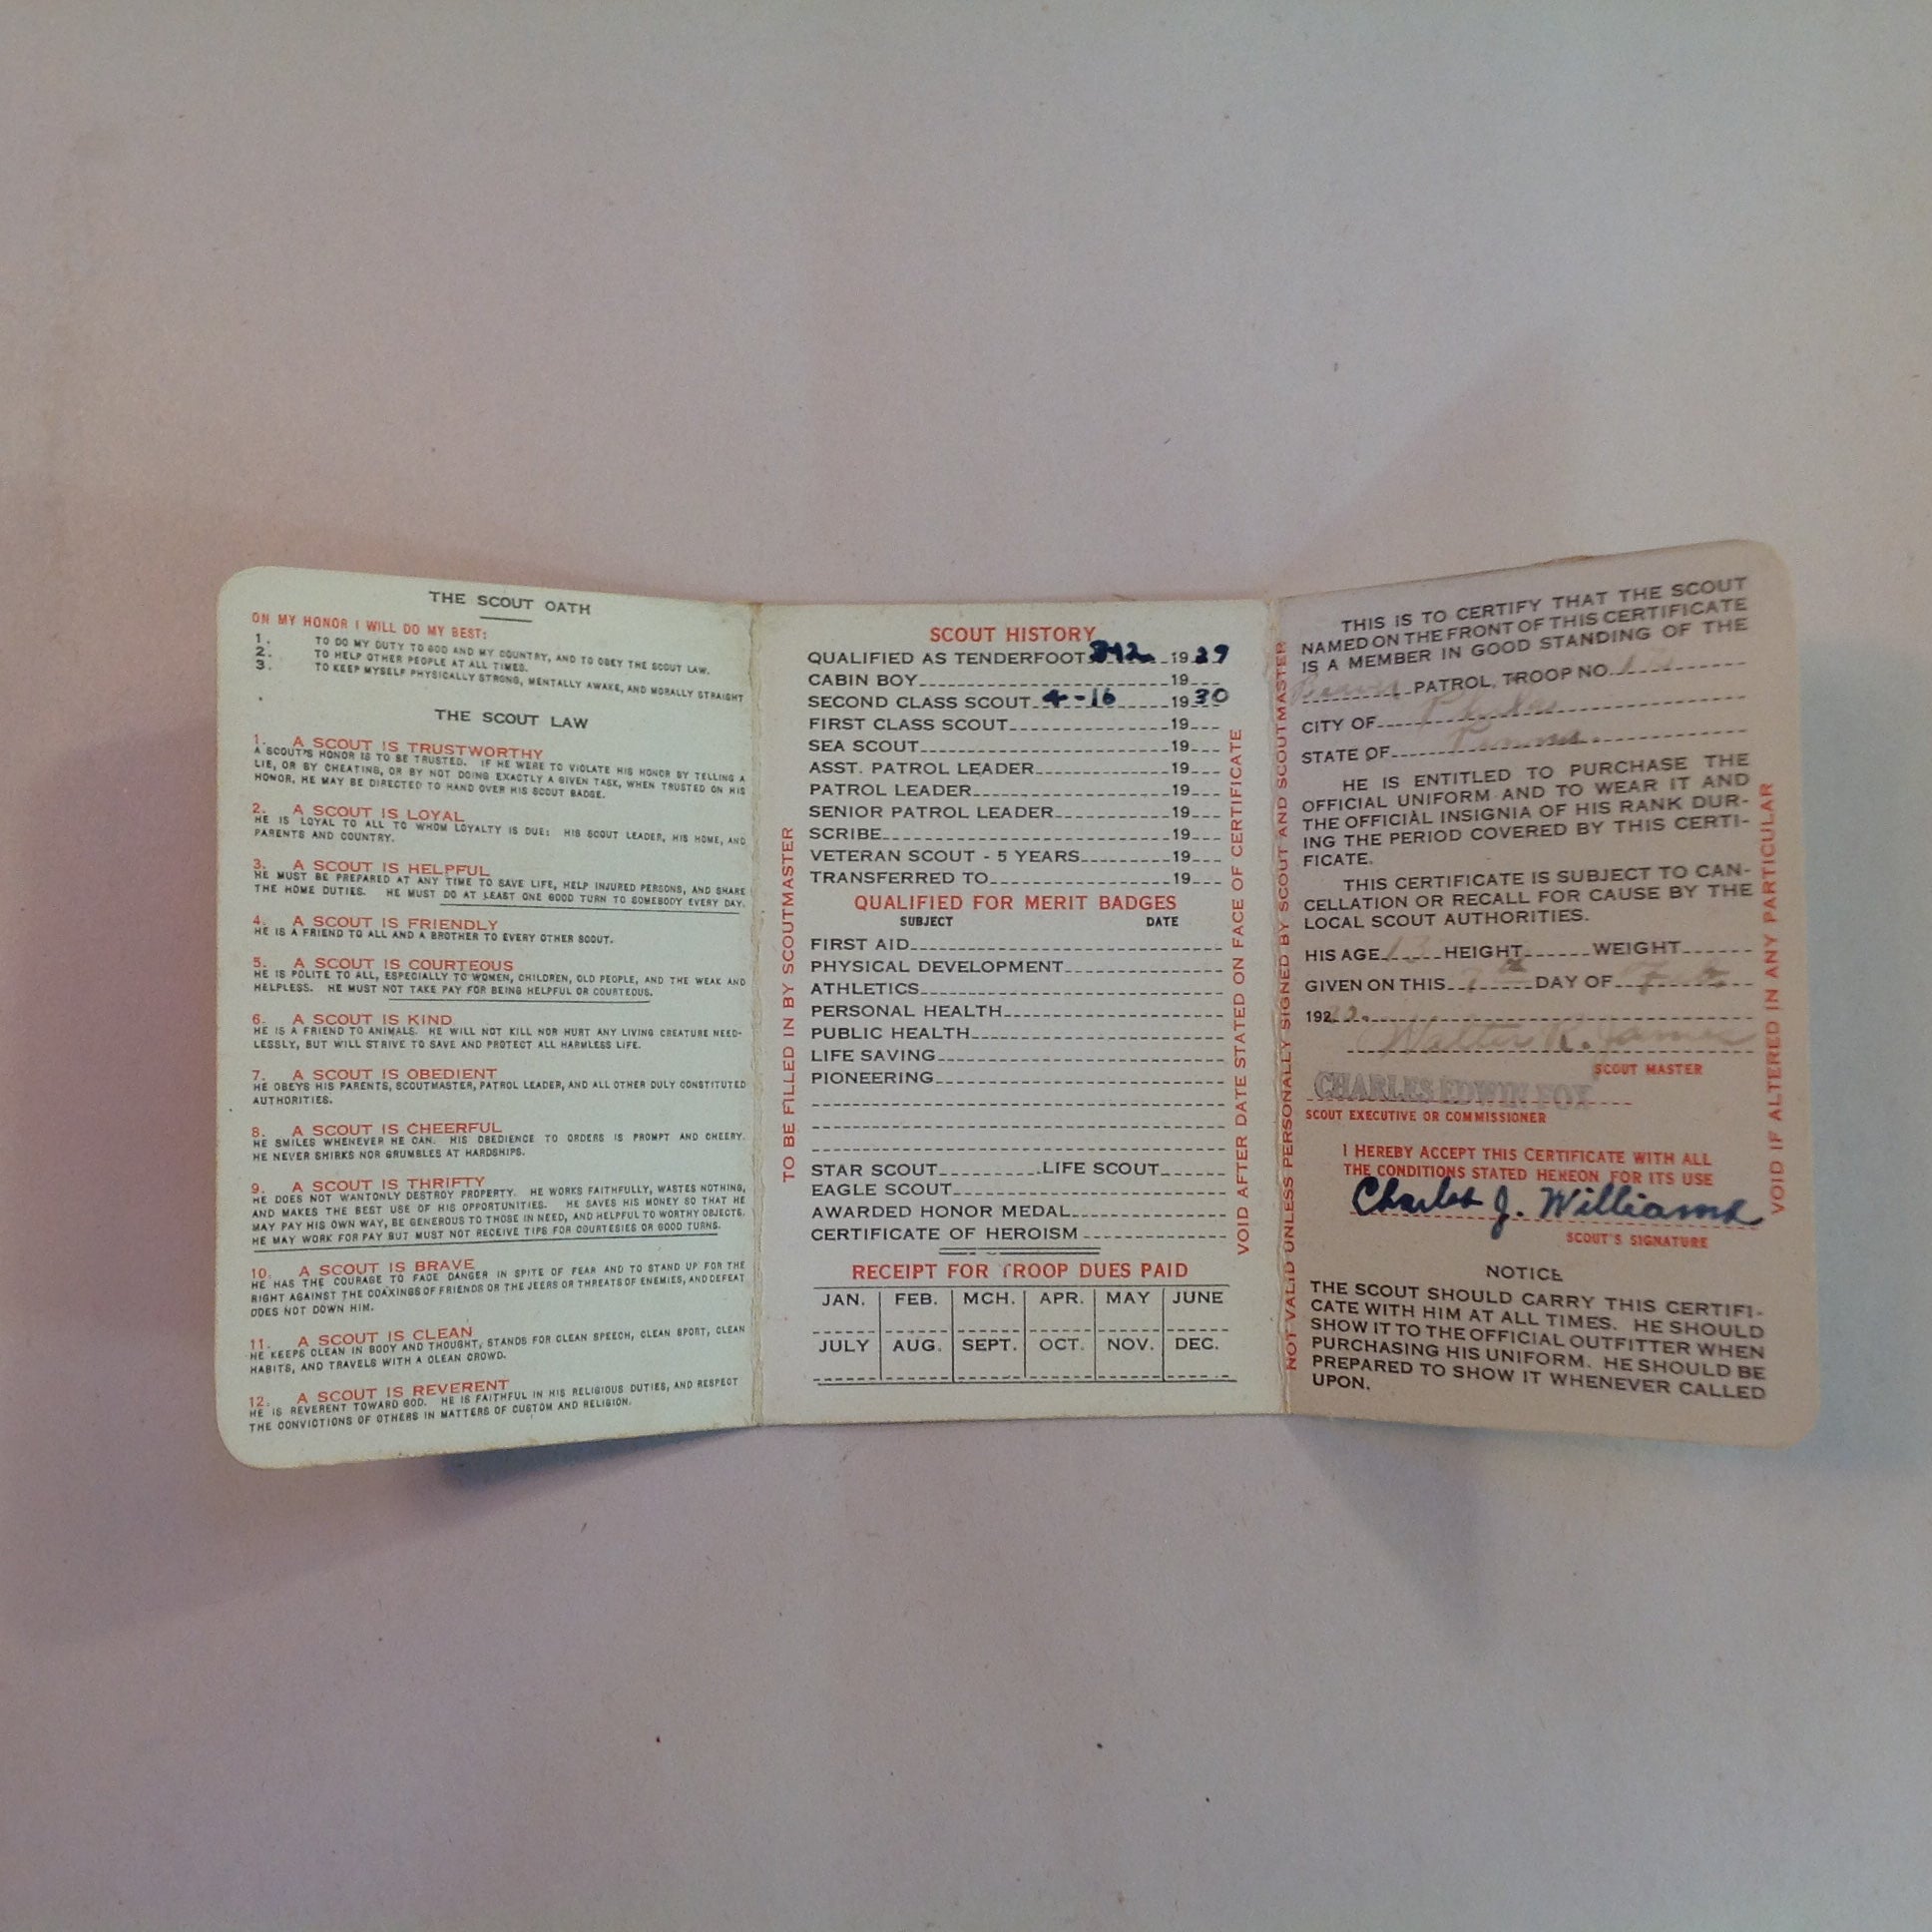 THE SCOUT OATH
ON MY HONOR I WILL DO MY BEST:
1. TO DO MY DUTY TO GOD AND MY COUNTRY, AND TO OBEY THE SCOUT LAW.
2. TO HELP OTHER PEOPLE AT ALL TIMES.
3. TO KEEP MYSELF PHYSICALLY STRONG, MENTALLY AWAKE, AND MORALLY STRAIGHT
THE SCOUT LAW
1. A SCOUT IS TRUSTWORTHY
A SCOUT'S HONOR IS TO BE TRUSTED. IF HE WERE TO VIOLATE HIS HONOR BY TELLING A
LIE, OR BY CHEATING, OR BY NOT DOING EXACTLY A GIVEN TASK, WHEN TRUSTED ON HIS
HONOR, HE MAY BE DIRECTED TO HAND OVER HIS SCOUT BADGE.
2. A SCOUT IS LOYAL
HE IS LOYAL TO ALL TO WHOM LOYALTY IS DUE: HIS SCOUT LEADER, HIS HOME, AND
PARENTS AND COUNTRY.
3. A SCOUT IS HELPFUL
HE MUST BE PREPARED AT ANY TIME TO SAVE LIFE, HELP INJURED PERSONS, AND SHARE
THE HOME DUTIES. HE MUST DO AT LEAST ONE GOOD TURN TO SOMEBODY EVERY DAY.
4. A SCOUT IS FRIENDLY
HE IS A FRIEND TO ALL AND A BROTHER TO EVERY OTHER SCOUT.
5. A SCOUT IS COURTEOUS
HE IS POLITE TO ALL, ESPECIALLY TO WOMEN, CHILDREN, OLD PEOPLE, AND THE WEAK AND
HELPLESS. HE MUST NOT TAKE PAY FOR BEING HELPFUL OR COURTEOUS.
6. A SCOUT IS KIND
HE IS A FRIEND TO ANIMALS. HE WILL NOT KILL NOR HURT ANY LIVING CREATURE NEED-
LESSLY, BUT WILL STRIVE TO SAVE AND PROTECT ALL HARMLESS LIFE.
7. A SCOUT IS OBEDIENT
HE OBEYS HIS PARENTS, SCOUTMASTER, PATROL LEADER, AND ALL OTHER DULY CONSTITUTED
AUTHORITIES.
8. A SCOUT IS CHEERFUL
HE SMILES WHENEVER HE CAN. HIS OBEDIENCE TO ORDERS IS PROMPT AND CHEERY.
HE NEVER SHIRKS NOR GRUMBLES AT HARDSHIPS.
9. A SCOUT IS THRIFTY
HE DOES NOT WANTONLY DESTROY PROPERTY. HE WORKS FAITHFULLY, WASTES NOTHING,
AND MAKES THE BEST USE OF HIS OPPORTUNITIES. HE SAVES HIS MONEY SO THAT HE
MAY PAY HIS OWN WAY, BE GENEROUS TO THOSE IN NEED, AND HELPFUL TO WORTHY OBJECTS.
HE MAY WORK FOR PAY BUT MUST NOT RECEIVE TIPS FOR COURTESIES OR GOOD TURNS.
10. A SCOUT IS BRAVE
HE HAS THE COURAGE TO FACE DANGER IN SPITE OF FEAR AND TO STAND UP FOR THE
RIGHT AGAINST THE COAXINGS OF FRIENDS OR THE JEERS OR THREATS OF ENEMIES, AND DEFEAT
DOES NOT DOWN HIM.
11. A SCOUT IS CLEAN
HE KEEPS CLEAN IN BODY AND THOUGHT, STANDS FOR CLEAN SPEECH, CLEAN SPORT, CLEAN
HABITS, AND TRAVELS WITH A CLEAN CROWD.
12. A SCOUT IS REVERENT
HE IS REVERENT TOWARD GOD. HE IS FAITHFUL IN HIS RELIGIOUS DUTIES, AND RESPECT
THE CONVICTIONS OF OTHERS IN MATTERS OF CUSTOM AND RELIGION.
TO BE FILLED IN BY SCOUTMASTER
SCOUT HISTORY
QUALIFIED AS TENDERFOOT 1929
CABIN BOY 19
SECOND CLASS SCOUT 4-16 1930
FIRST CLASS SCOUT 19
SEA SCOUT 19
ASST. PATROL LEADER 19
PATROL LEADER 19
SENIOR PATROL LEADER 19
SCRIBE 19
VETERAN SCOUT - 5 YEARS 19
TRANSFERRED TO 19
QUALIFIED FOR MERIT BADGES
SUBJECT DATE
FIRST AID
PHYSICAL DEVELOPMENT
ATHLETICS
PERSONAL HEALTH
PUBLIC HEALTH
LIFE SAVING
PIONEERING
STAR SCOUT LIFE SCOUT
EAGLE SCOUT
AWARDED HONOR MEDAL
CERTIFICATE OF HEROISM
RECEIPT FOR TROOP DUES PAID
JAN. FEB. MCH. APR. MAY JUNE
JULY AUG. SEPT. OCT. NOV. DEC.
VOID AFTER DATE STATED ON FACE OF CERTIFICATE
NOT VALID UNLESS PERSONALLY SIGNED BY SCOUT AND SCOUTMASTER
THIS IS TO CERTIFY THAT THE SCOUT
NAMED ON THE FRONT OF THIS CERTIFICATE
IS A MEMBER IN GOOD STANDING OF THE
Beaver PATROL, TROOP NO.
CITY OF Phila
STATE OF Penna.
HE IS ENTITLED TO PURCHASE THE
OFFICIAL UNIFORM AND TO WEAR IT AND
THE OFFICIAL INSIGNIA OF HIS RANK DUR-
ING THE PERIOD COVERED BY THIS CERTI-
FICATE.
THIS CERTIFICATE IS SUBJECT TO CAN-
CELLATION OR RECALL FOR CAUSE BY THE
LOCAL SCOUT AUTHORITIES.
HIS AGE 13 HEIGHT WEIGHT
GIVEN ON THIS DAY OF Feb
192
Walter R. James
SCOUT MASTER
CHARLES EDWIN FOX
SCOUT EXECUTIVE OR COMMISSIONER
I HEREBY ACCEPT THIS CERTIFICATE WITH ALL
THE CONDITIONS STATED HEREON FOR ITS USE
Charles J. Williams
SCOUT'S SIGNATURE
NOTICE
THE SCOUT SHOULD CARRY THIS CERTIFI-
CATE WITH HIM AT ALL TIMES. HE SHOULD
SHOW IT TO THE OFFICIAL OUTFITTER WHEN
PURCHASING HIS UNIFORM. HE SHOULD BE
PREPARED TO SHOW IT WHENEVER CALLED
UPON.
VOID IF ALTERED IN ANY PARTICULAR